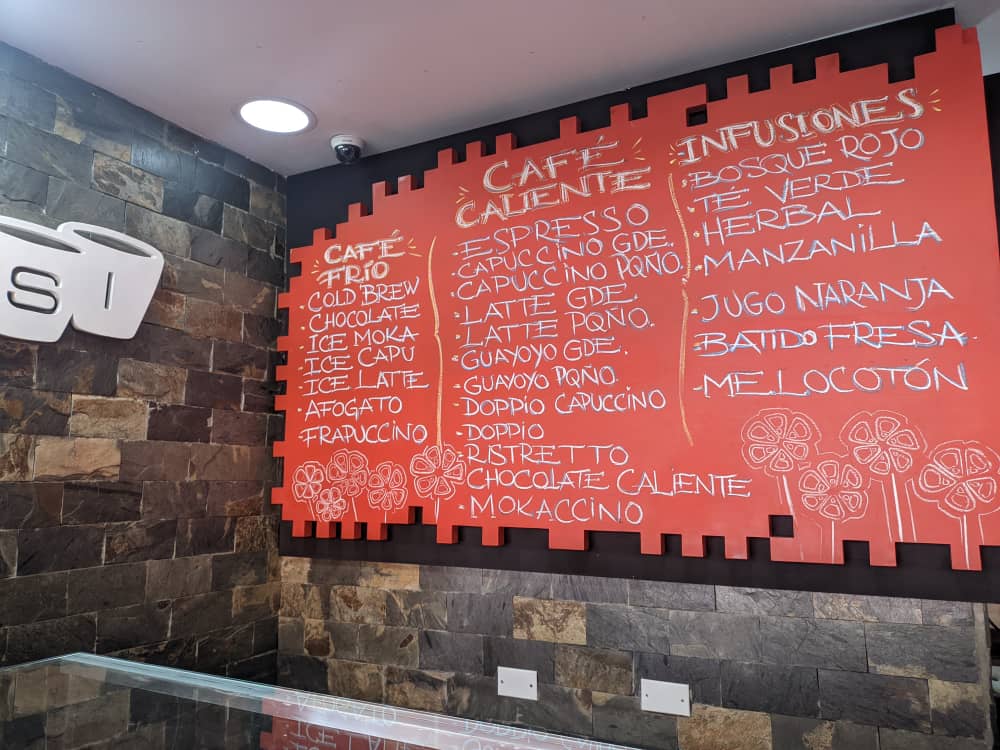 SI
CAFÉ
FRÍO
-COLD BREW
-CHOCOLATE
-ICE MOKA
-ICE CAPU
-ICE LATTE
-AFOGATO
-FRAPUCCINO
CAFÉ
CALIENTE
-ESPRESSO
-CAPUCCINO GDE.
-CAPUCCINO PQÑO.
-LATTE GDE
-LATTE PQÑO.
-GUAYOYO GDE.
-GUAYOYO PQÑO.
-DOPPIO CAPUCCINO
-DOPPIO
-RISTRETTO
-CHOCOLATE CALIENTE
-MOKACCINO
INFUSIONES
-BOSQUE ROJO
-TÉ VERDE
-HERBAL
-MANZANILLA
-JUGO NARANJA
-BATIDO FRESA
-MELOCOTÓN